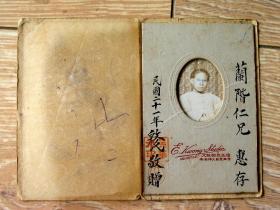 蘭階仁兄 惠存
民國二十一年敦民敬贈
E. Kwong Studio